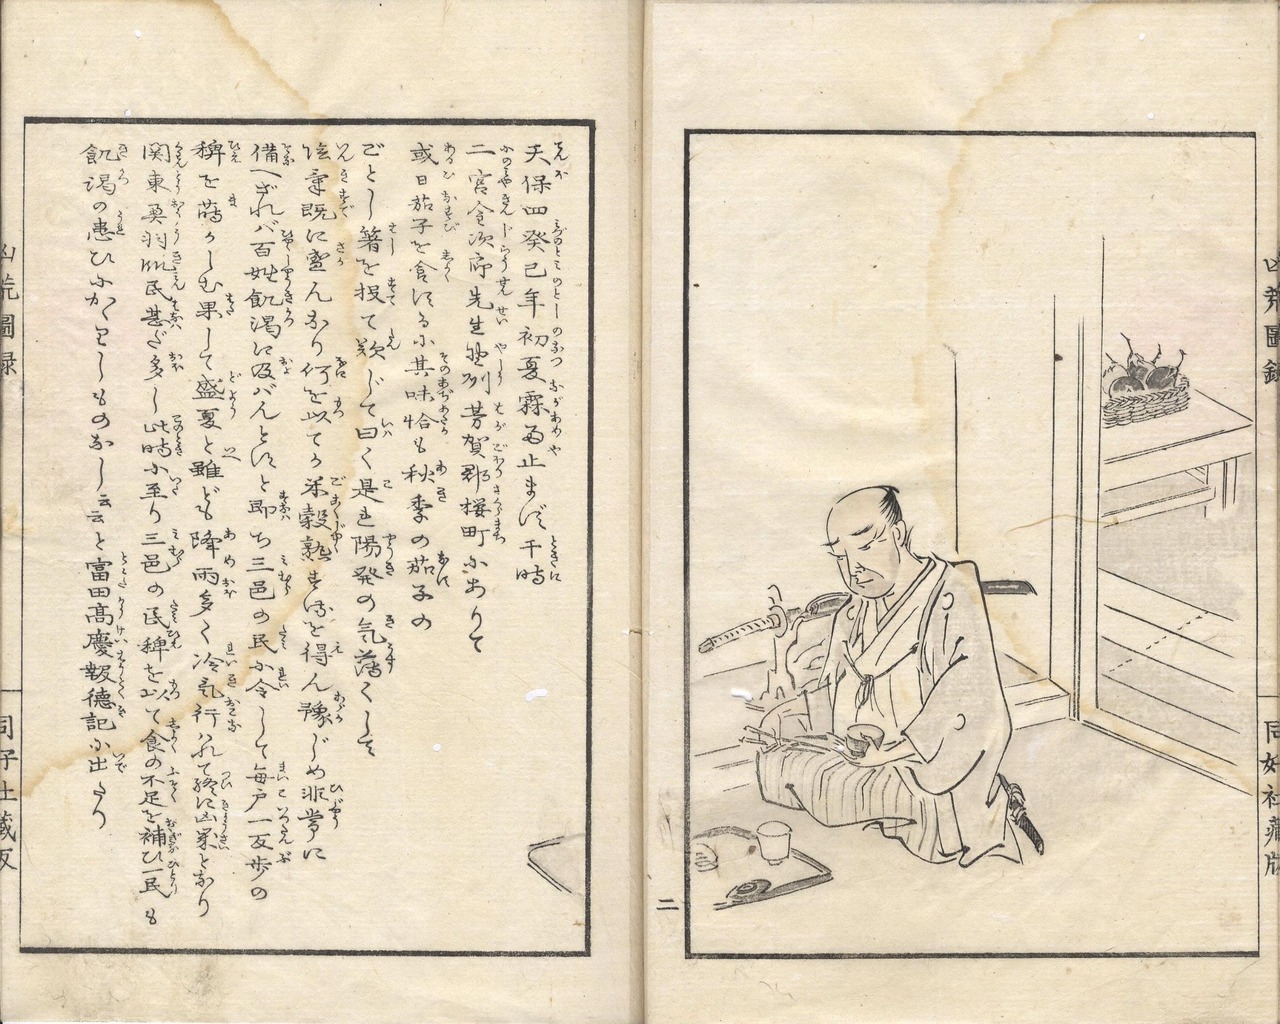 凶荒圖録
同好社蔵版
二
天保四癸巳年初夏霖雨止まず于時
二宮金次郎先生野州芳賀郡桜町にありて
或日茄子を食にるに其味恰も秋季の茄子の
ごとし箸を投て歎じて曰く是れ陽発の気薄くして
陰氣既に盛んなり何を以てか米穀熟するを得ん豫じめ非常に
備へざれバ百姓飢渇に及バんとすと即ち三邑の民に令して毎戸一反歩の
稗を蒔かしむ果して盛夏と雖ども降雨多く冷氣行はれて終に凶歳となり
関東奥羽飢民甚だ多し此時に至り三邑の民稗を以て食の不足を補ひ一民も
飢渇の患ひにかゝりしものなし云云と富田高慶報徳記に出たり
凶荒圖録
同好社蔵版